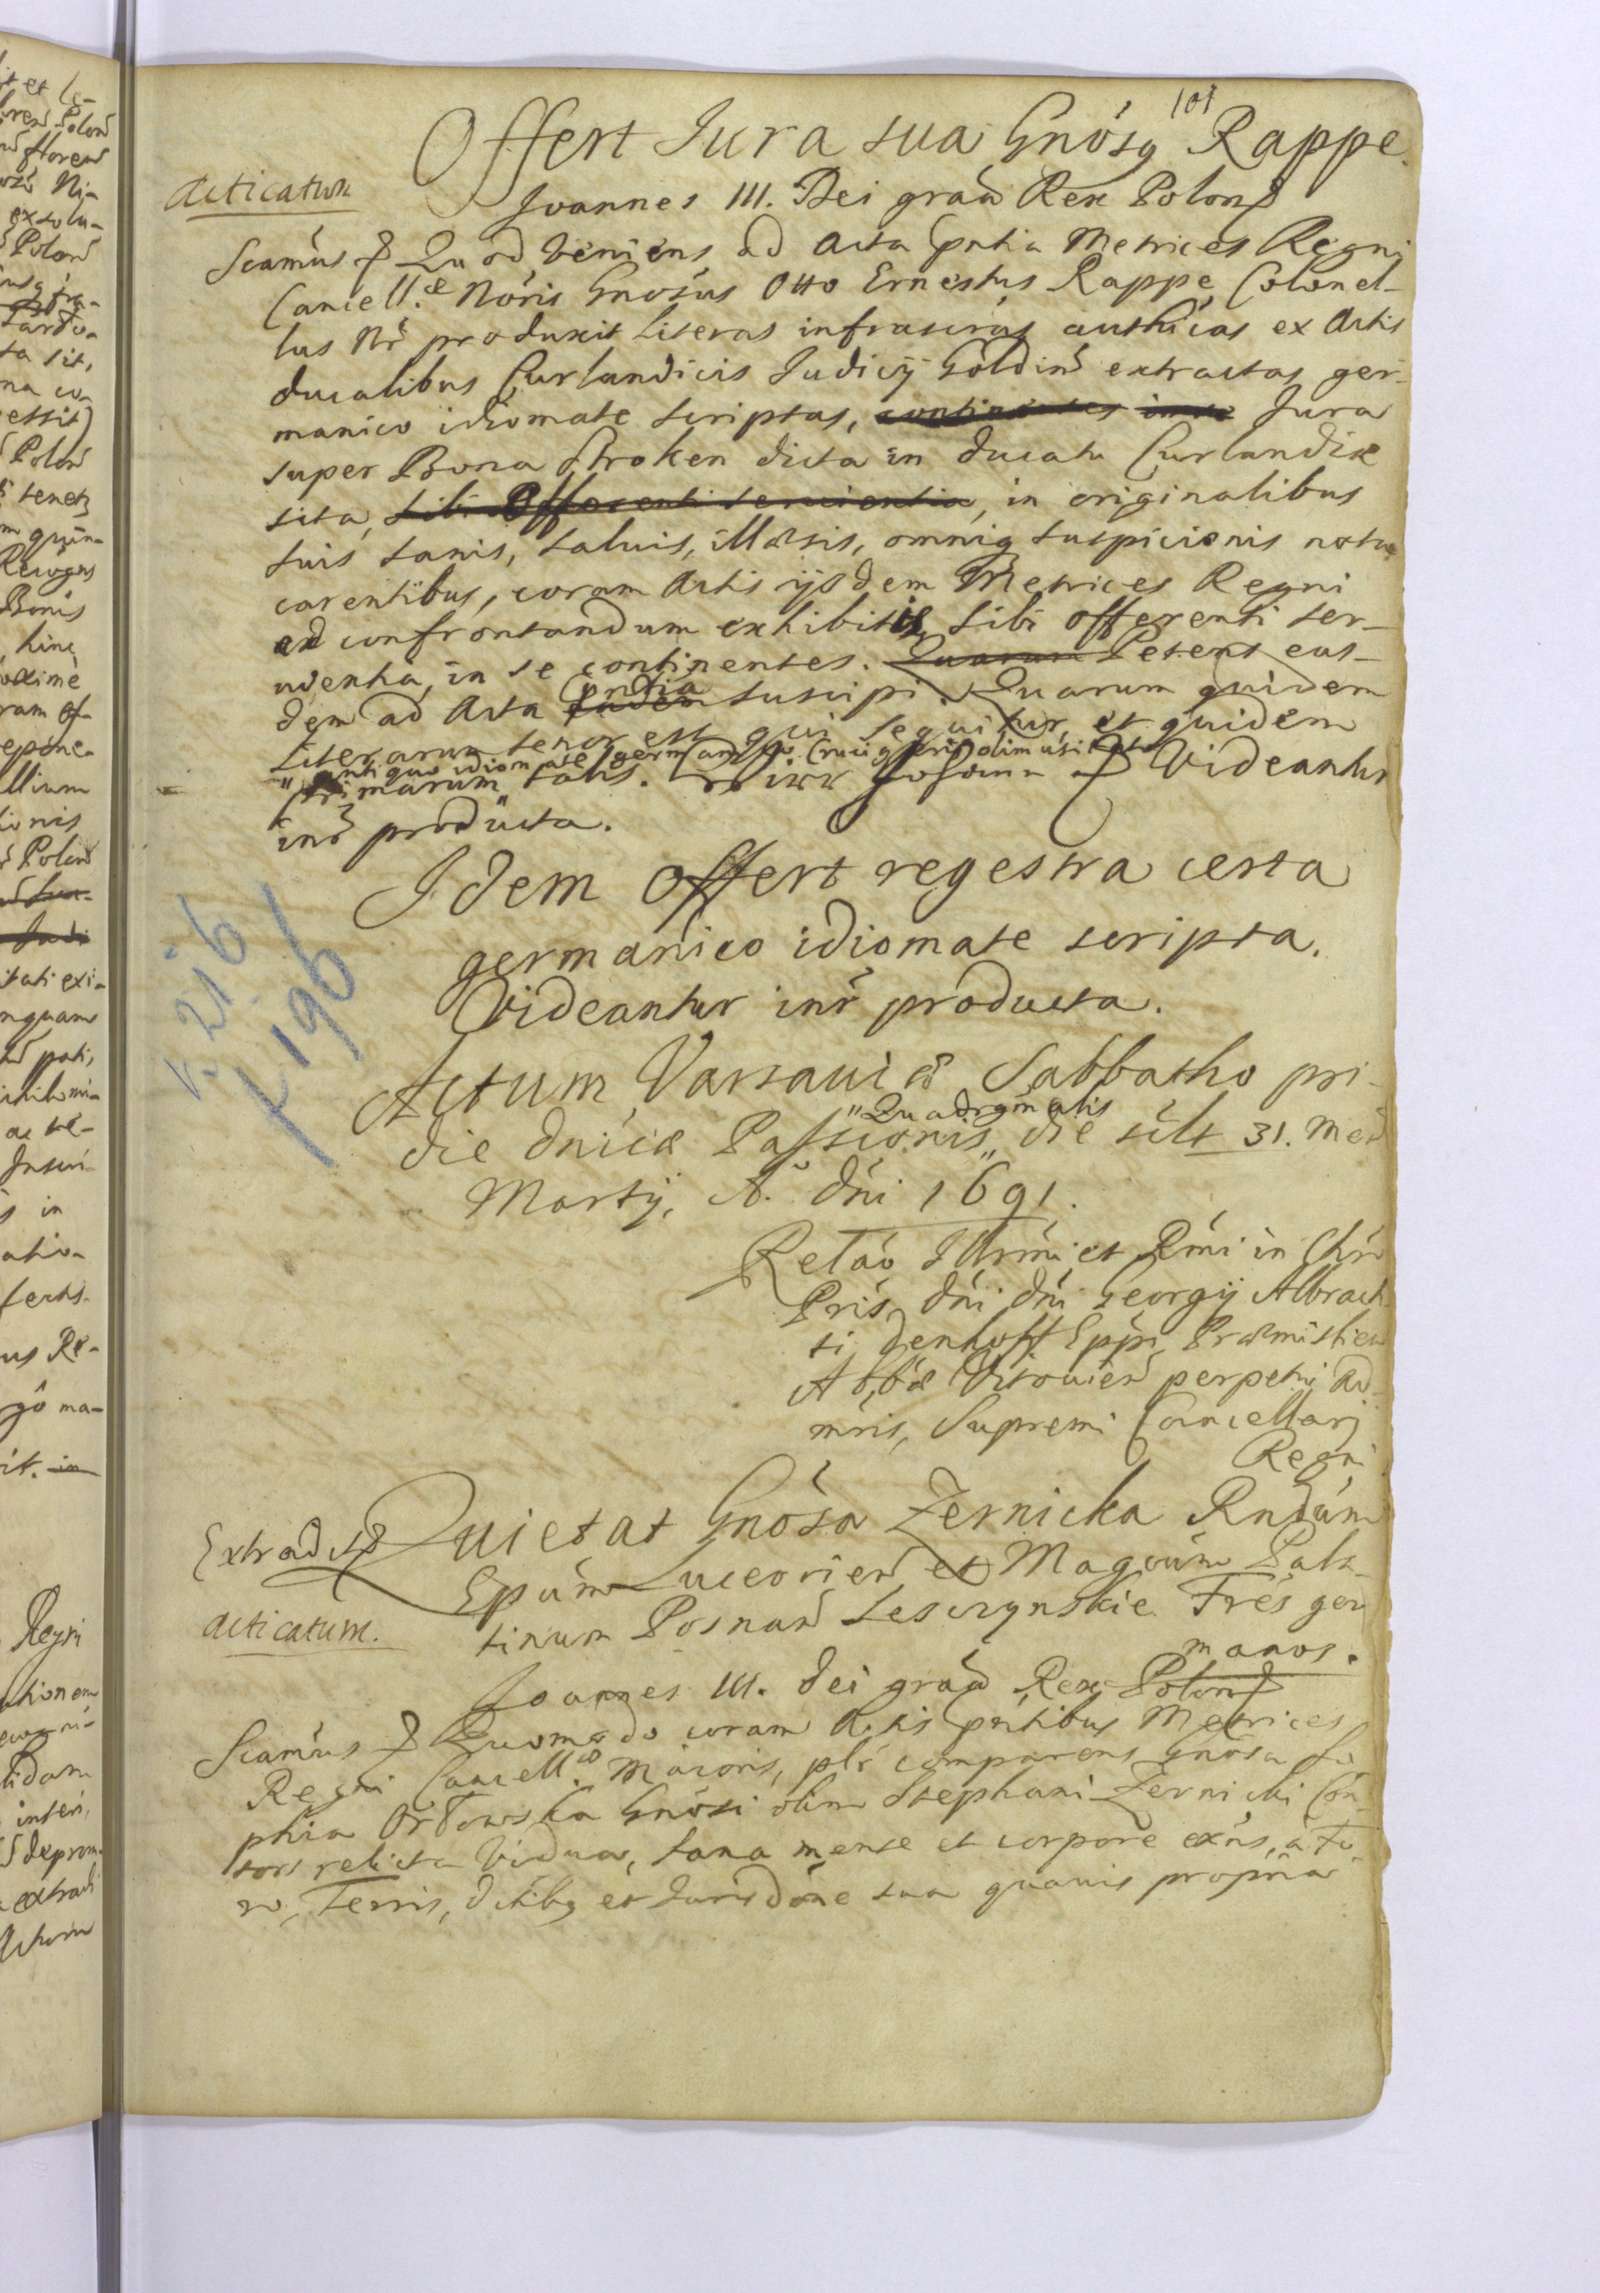 101
Offert Jura sua Gnósq Rappe.
Acticatum
Joannes III. Dei graâ Rex Polon
Scamús Quod veniens ad Acta pntia Metrices Regni
Cancell.æ Nóris Gnósus Otto Ernestus Rappe, Colonel-
lus Nr̃ produxit literas infrascrás authcas ex Actis
ducalibus Curlandicis Judicÿ Goldin extractas ger-
manico idiomate scriptas, Jura
super Bona Stroken dicta in ducatu Curlandiæ
sita, sibi Offerenti servientia, in originalibus
suis sanis, saluis, illæsis, omniq suspicionis nota
carentibus, coram Actis ijsdem Metrices Regni
ad confrontandum exhibitis, sibi offerenti ser-
uientia, in se continentes. Quarum Petens eas-
dem ad Acta eadem pntia suscipi. Quarum quidem
literarum tenor est qui sequitur, et quidem
"antiquo idiomate German
primarum" talis. Wir Johann Videantur
int̃ producta.
Idem Offert regestra certa
germanico idiomate scripta.
Videantur int̃ producta.
v. 216
F 196
Actum Varsauiæ Sabbatho pri-
die dnícæ Passionis "Quadrgmalis" die sclt 31. Men
Martÿ, A. dńi 1691.
Relaó Illrmi et Rmi in Chro
Pris, dńi dńi Georgÿ Albrach-
ti Denhoff Eppi Præmislien
Abbæ Vitouien perpetui Ad-
mris, Supremi Cancellarj
Regni
Extradit
Quietat Gnósa Zernicka Rndum
Epum Luceorien et Magcum Pala-
tinum Posnan Lesczynskie Frés ger
manos.
Acticatum.
Joannes III. Dei graâ Rex Polon
Scamús Quomodo coram Actis pntibus Metrices
Regni Cancell.æ Maioris, plr comparens Gnósa So-
phia Orłowska Gnósi olim Stephani Zernicki Con-
sors relicta Vidua, sana mente et corpore exńs, a Fo-
ro, Terris, dctibq et Jurisdóne sua quauis propria